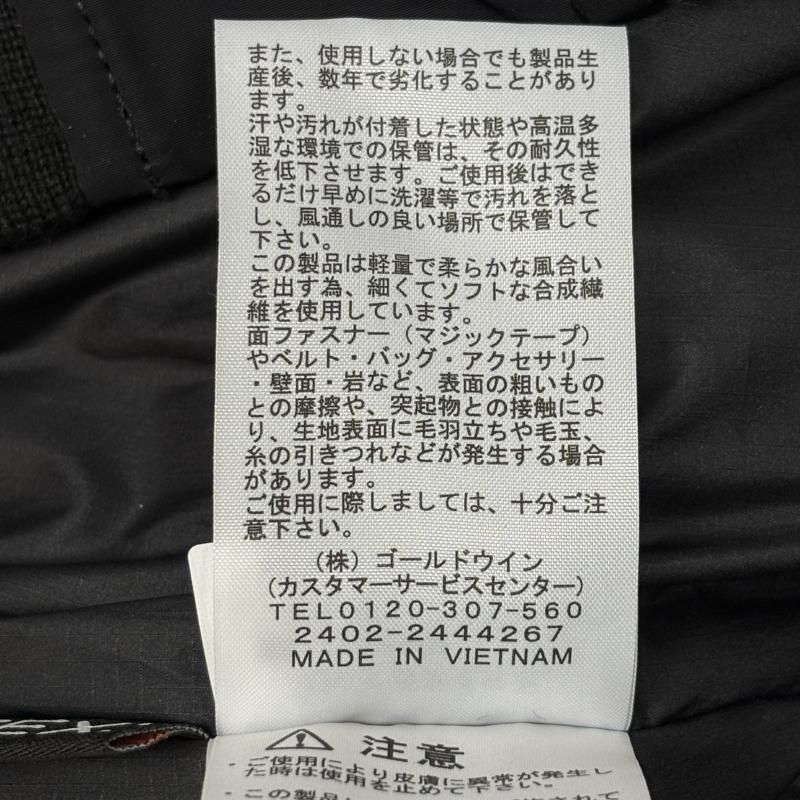 また、使用しない場合でも製品生
産後、数年で劣化することがあり
ます。
汗や汚れが付着した状態や高温多
湿な環境での保管は、その耐久性
を低下させます。ご使用後はでき
るだけ早めに洗濯等で汚れを落と
し、風通しの良い場所で保管して
下さい。
この製品は軽量で柔らかな風合い
を出す為、細くてソフトな合成繊
維を使用しています。
面ファスナー（マジックテープ）
やベルト・バッグ・アクセサリー
・壁面・岩など、表面の粗いもの
との摩擦や、突起物との接触によ
り、生地表面に毛羽立ちや毛玉、
糸の引きつれなどが発生する場合
があります。
ご使用に際しましては、十分ご注
意下さい。
（株）ゴールドウイン
（カスタマーサービスセンター）
TEL0120-307-560
2402-2444267
MADE IN VIETNAM
注意
・ご使用により皮膚に異常が発生し
た時は使用を止めて下さい。